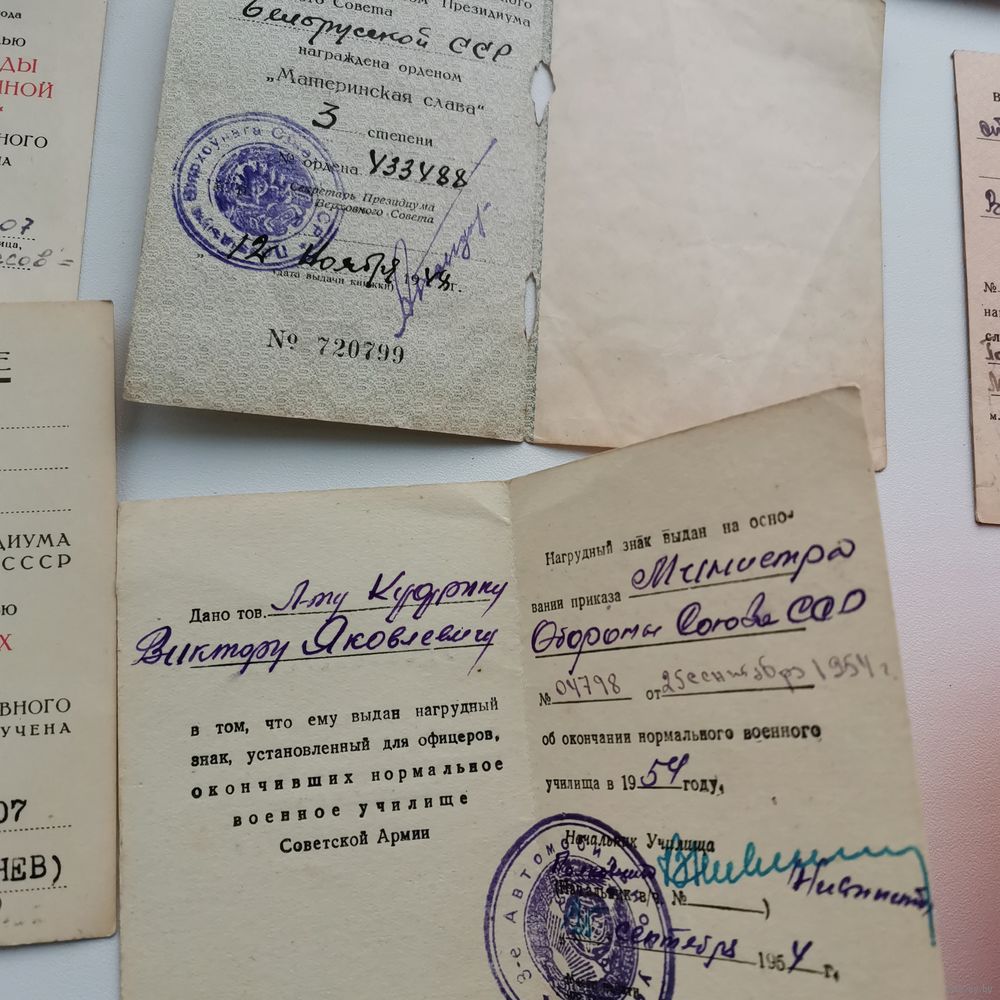 ода
ЬЮ
ДЫ
ННОЙ
НОГО
НА
07
ница,
сов =
Е
ДИУМА
СССР
ЬЮ
Х
ВНОГО
УЧЕНА
07
НЕВ)
Президиума
Совета
Белорусской ССР
награждена орденом
„Материнская слава“
3 степени
№ ордена 433488
Секретарь Президиума
Верховного Совета
„ 12 Ноября 19 г.
(дата выдачи книжки)
№ 720799
Дано тов. Л-ту Кудрину
Виктору Яковлевичу
в том, что ему выдан нагрудный
знак, установленный для офицеров,
окончивших нормальное
военное училище
Советской Армии
Нагрудный знак выдан на осно-
вании приказа Министра
Обороны Союза ССР
№ 04798 от 25 сентября 1954 г.
об окончании нормального военного
училища в 1954 году,
Начальник Училища
(Начальник в/ч. № )
сентября 1954 г.
3-е АВТОМОБИЛЬНО
В
№
на
сл
м.